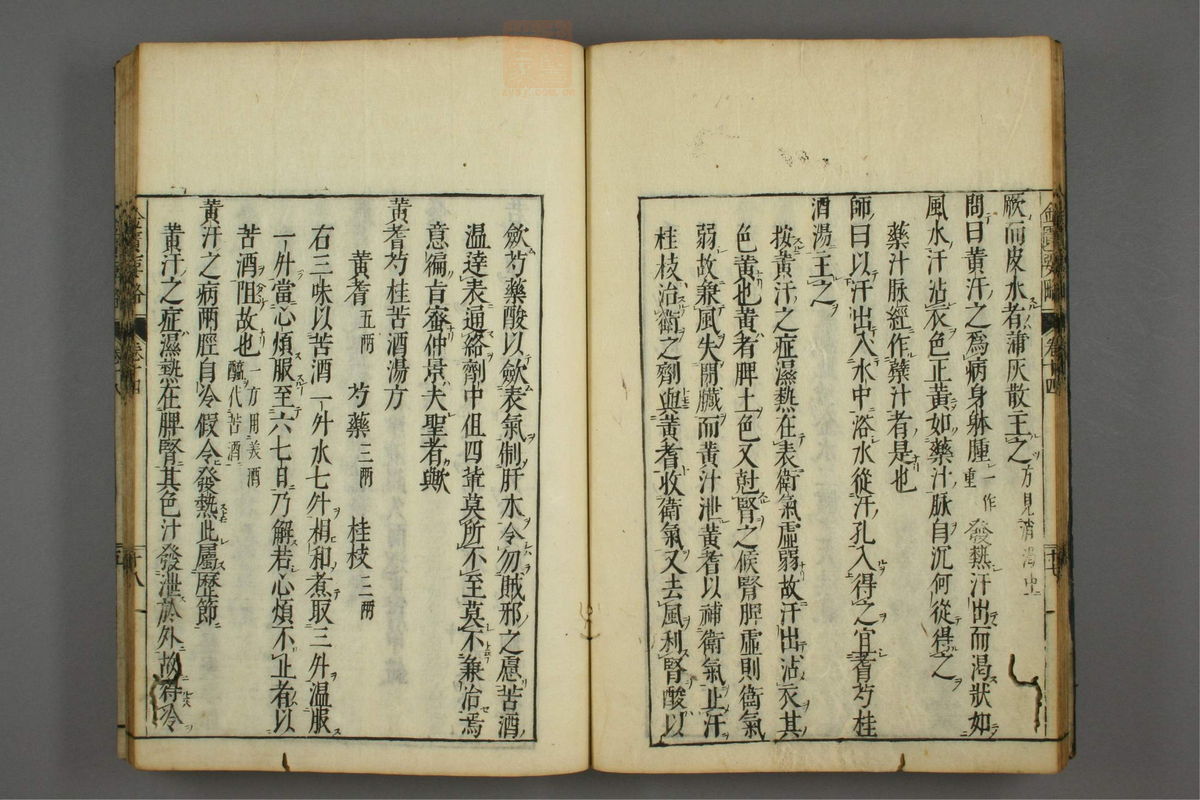 厥而皮水者蒲灰散主之方見消渴中
問曰黃汗之爲病身躰腫一作重發熱汗出而渴狀如
風水汗沾衣色正黃如藥汁脉自沉何從得之
藥汁脉經作蘗汁者是也
師曰以汗出入水中浴水從汗孔入得之宜耆芍桂
酒湯主之
按黃汗之症濕熱在表衛氣虛弱故汗出沾衣其
色黃也黃者脾土色又尅腎之候腎脾虛則衛氣
弱故兼風失閉臟而黃汁泄黃耆以補衛氣止汗
桂枝治衛之劑與黃耆收衛氣又去風利腎酸以
歛芍藥酸以歛表氣制肝木令勿賊邪之慮苦酒
溫達表通絡劑中但四葷莫所不至莫不兼治焉
意徧肯窽仲景夫聖者歟
黃耆芍桂苦酒湯方
黃耆五兩 芍藥三兩 桂枝三兩
右三味以苦酒一升水七升相和煮取三升溫服
一升當心煩服至六七日乃解若心煩不止者以
苦酒阻故也一方用美酒醯代苦酒
黃汗之病兩脛自冷假令發熱此屬歷節
黃汗之症濕熱在脾腎其色汁發泄於外故得冷